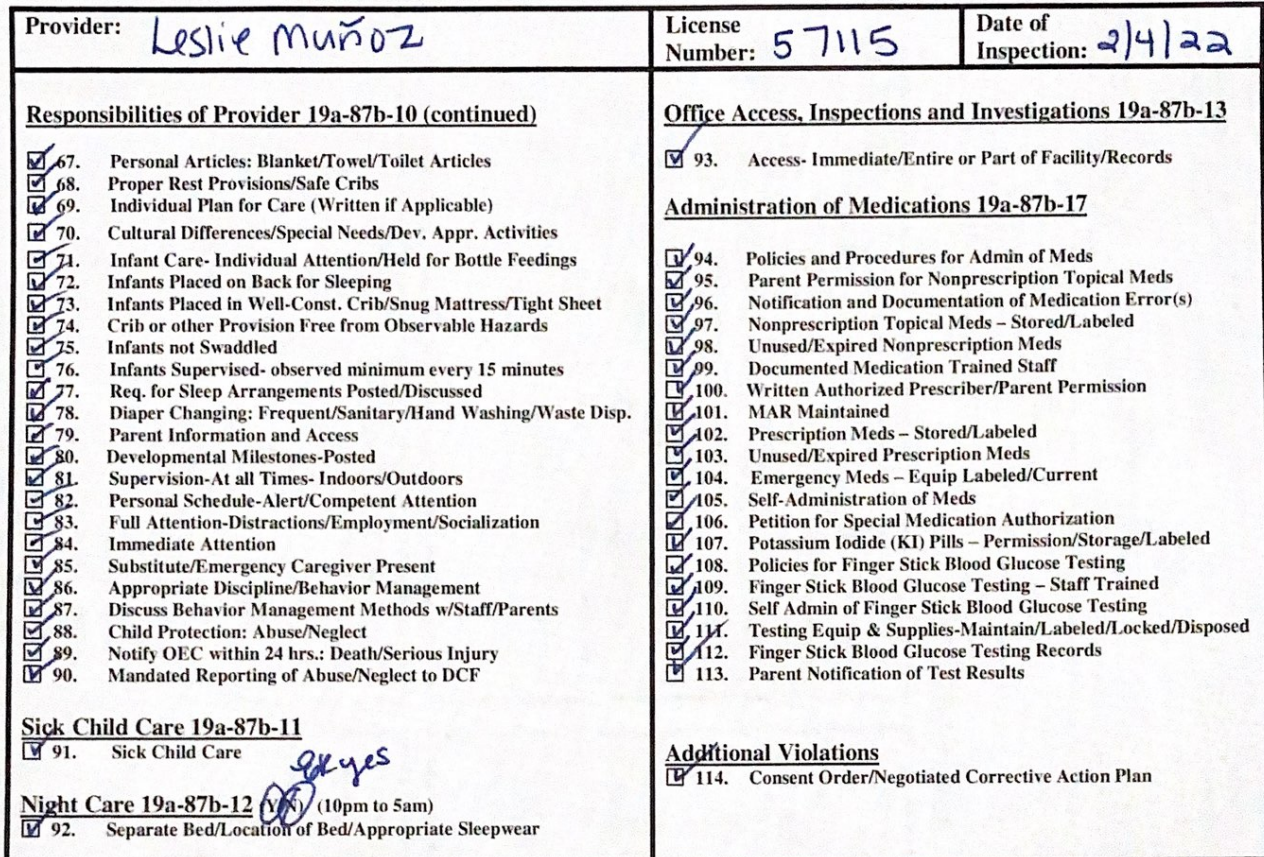 Provider: Leslie Muñoz
License Number: 57115
Date of Inspection: 2/4/22
Responsibilities of Provider 19a-87b-10 (continued)
67. Personal Articles: Blanket/Towel/Toilet Articles
68. Proper Rest Provisions/Safe Cribs
69. Individual Plan for Care (Written if Applicable)
70. Cultural Differences/Special Needs/Dev. Appr. Activities
71. Infant Care- Individual Attention/Held for Bottle Feedings
72. Infants Placed on Back for Sleeping
73. Infants Placed in Well-Const. Crib/Snug Mattress/Tight Sheet
74. Crib or other Provision Free from Observable Hazards
75. Infants not Swaddled
76. Infants Supervised- observed minimum every 15 minutes
77. Req. for Sleep Arrangements Posted/Discussed
78. Diaper Changing: Frequent/Sanitary/Hand Washing/Waste Disp.
79. Parent Information and Access
80. Developmental Milestones-Posted
81. Supervision-At all Times- Indoors/Outdoors
82. Personal Schedule-Alert/Competent Attention
83. Full Attention-Distractions/Employment/Socialization
84. Immediate Attention
85. Substitute/Emergency Caregiver Present
86. Appropriate Discipline/Behavior Management
87. Discuss Behavior Management Methods w/Staff/Parents
88. Child Protection: Abuse/Neglect
89. Notify OEC within 24 hrs.: Death/Serious Injury
90. Mandated Reporting of Abuse/Neglect to DCF
Sick Child Care 19a-87b-11
91. Sick Child Care
yes
Night Care 19a-87b-12 (Y/N) (10pm to 5am)
92. Separate Bed/Location of Bed/Appropriate Sleepwear
Office Access, Inspections and Investigations 19a-87b-13
93. Access- Immediate/Entire or Part of Facility/Records
Administration of Medications 19a-87b-17
94. Policies and Procedures for Admin of Meds
95. Parent Permission for Nonprescription Topical Meds
96. Notification and Documentation of Medication Error(s)
97. Nonprescription Topical Meds – Stored/Labeled
98. Unused/Expired Nonprescription Meds
99. Documented Medication Trained Staff
100. Written Authorized Prescriber/Parent Permission
101. MAR Maintained
102. Prescription Meds – Stored/Labeled
103. Unused/Expired Prescription Meds
104. Emergency Meds – Equip Labeled/Current
105. Self-Administration of Meds
106. Petition for Special Medication Authorization
107. Potassium Iodide (KI) Pills – Permission/Storage/Labeled
108. Policies for Finger Stick Blood Glucose Testing
109. Finger Stick Blood Glucose Testing – Staff Trained
110. Self Admin of Finger Stick Blood Glucose Testing
111. Testing Equip & Supplies-Maintain/Labeled/Locked/Disposed
112. Finger Stick Blood Glucose Testing Records
113. Parent Notification of Test Results
Additional Violations
114. Consent Order/Negotiated Corrective Action Plan